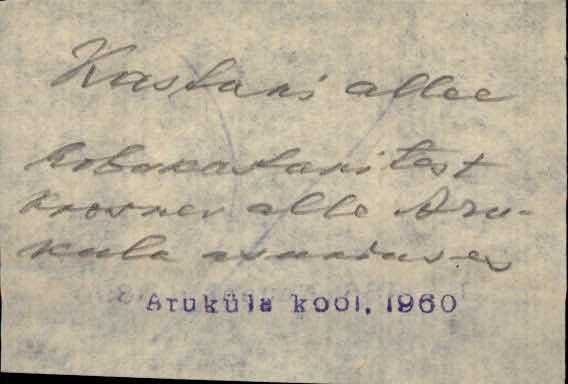 Kastani allee
hobukastanitest
alle Aru-
küla asunduses
Aruküla kool, 1960